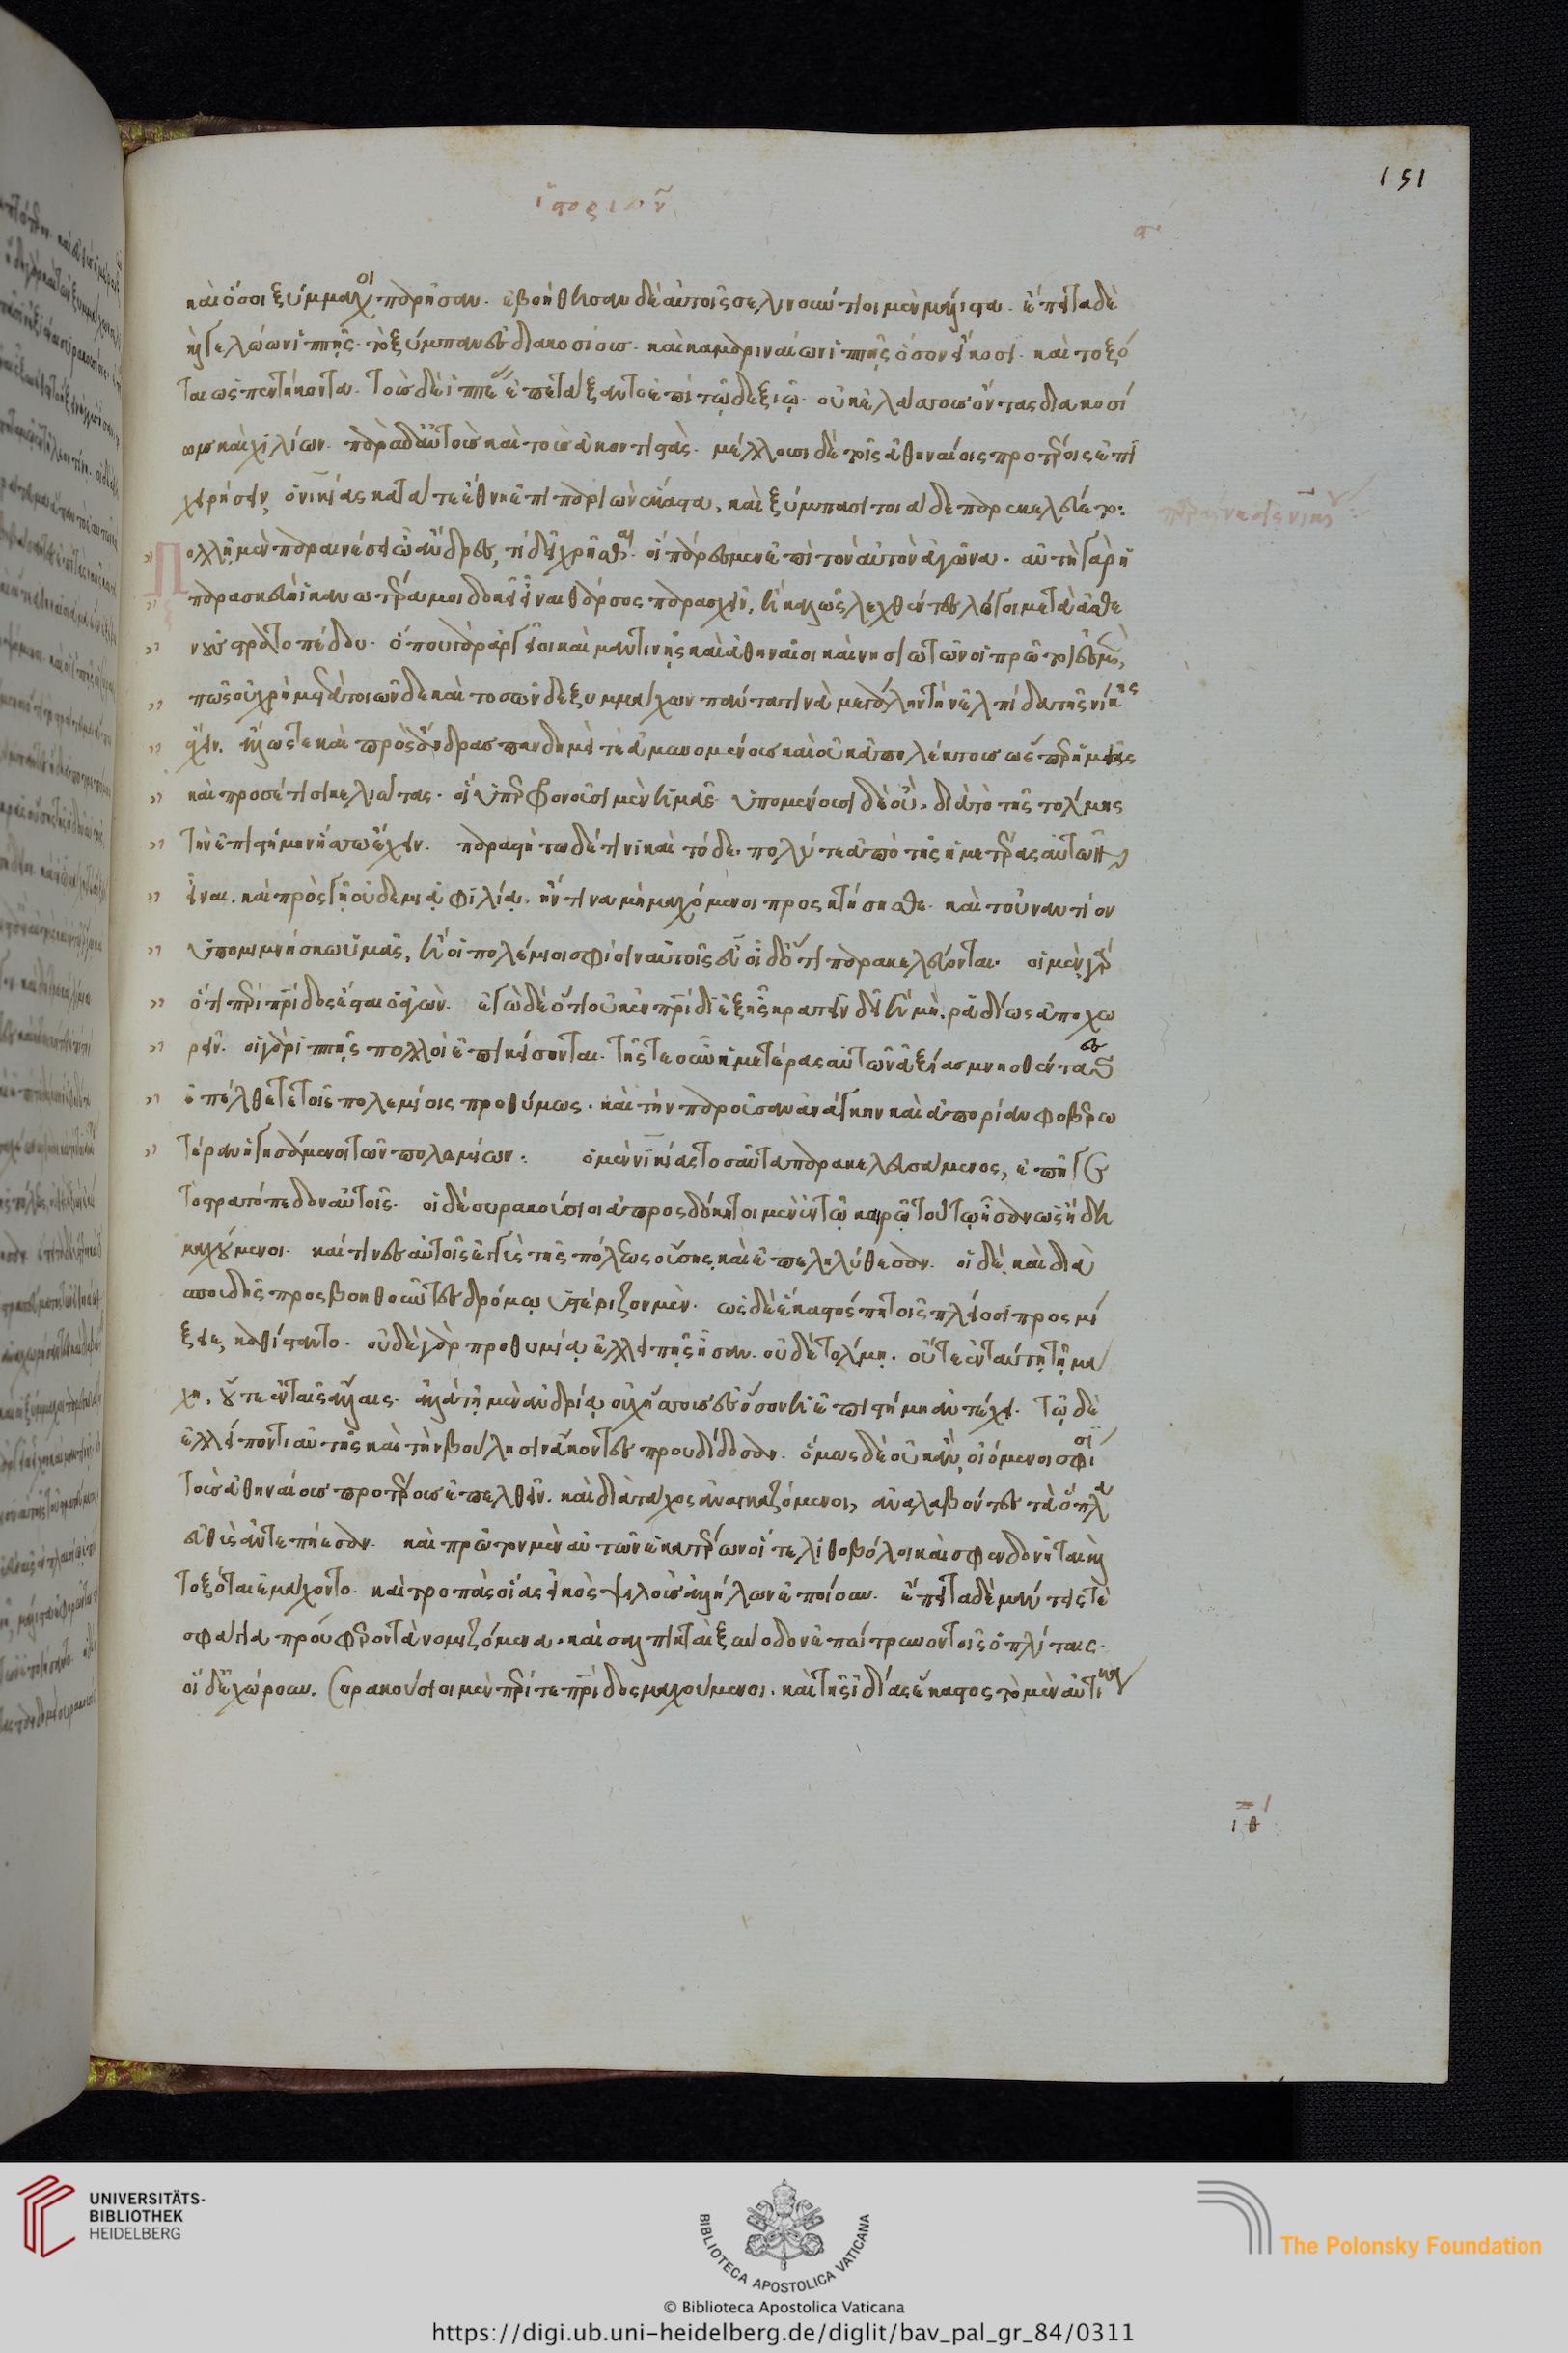 ἱστοριῶν
151
καὶ ὅσοι ξύμμαχοι παρῆσαν. ἐβοήθησαν δὲ αὐτοῖς σελινούντιοι μὲν μάλιστα. ἔπειτα δὲ
καὶ γελώων ἱππῆς. τὸ ξύμπαν ἐς διακοσίους. καὶ καμαριναίων ἱππῆς ὅσον εἴκοσι. καὶ τοξό
ται ὡς πεντήκοντα. τοὺς δὲ ἱππέας ἐπετάξαντο ἐπὶ τῷ δεξιῷ. οὐκ ἐλάσσους ὄντας διακοσί
ων καὶ χιλίων. παρὰ δ' αὐτοὺς καὶ τοὺς ἀκοντιστάς. μέλλουσι δὲ τοῖς ἀθηναίοις προτέροις ἐπι
χειρήσειν, ὁ νικίας κατά τε ἔθνη ἐπιπαριὼν ἕκαστα, καὶ ξύμπασι τοιάδε παρεκελεύετο:
Πολλῇ μὲν παραινέσει ὦ ἄνδρες, τί δεῖ χρῆσθαι. οἳ πάρεσμεν ἐπὶ τὸν αὐτὸν ἀγῶνα. αὐτὴ γὰρ ἡ
παρασκευὴ ἱκανωτέρα μοι δοκεῖ εἶναι θάρσος παρασχεῖν, ἢ καλῶς λεχθέντες λόγοι μετὰ ἀσθε
νοῦς στρατοπέδου. ὅπου γὰρ ἀργεῖοι καὶ μαντινῆς καὶ ἀθηναῖοι καὶ νησιωτῶν οἱ πρῶτοι ἐσμὲν,
πῶς οὐ χρὴ μετὰ τοιῶνδε καὶ τοσῶνδε ξυμμάχων πάντα τινὰ μεγάλην τὴν ἐλπίδα τῆς νίκης
ἔχειν. ἄλλως τε καὶ πρὸς ἄνδρας πανδημεί τε ἀμυνομένους καὶ οὐκ ἀπολέκτους ὥσπερ ἡμᾶς
καὶ προσέτι σικελιώτας. οἳ ὑπερφρονοῦσι μὲν ἡμᾶς ὑπομένουσι δὲ οὔ. διὰ τὸ τῆς τόλμης
τὴν ἐπιστήμην ἥσσω ἔχειν. παραστήτω δέ τινι καὶ τόδε. πολύ τε ἀπὸ τῆς ἡμετέρας αὐτῶν
εἶναι. καὶ πρὸς γῇ οὐδεμιᾷ φιλίᾳ. ἥντινα μὴ μαχόμενοι προσκτήσησθε. καὶ τοὐναντίον
ὑπομιμνήσκω ὑμᾶς, ἢ οἱ πολέμιοι σφίσιν αὐτοῖς εὖ οἶδ' ὅτι παρακελεύονται. οἱ μὲν γὰρ
ὅτι περὶ πατρίδος ἔσται ὁ ἀγών. ἐγὼ δὲ ὅτι οὐκ ἐν πατρίδι ἐξ ἧς κρατεῖν δεῖ ἢ μὴ ῥᾳδίως ἀποχω
ρεῖν. οἱ γὰρ ἱππῆς πολλοὶ ἐπικείσονται. τῆς τε οὖν ἡμετέρας αὐτῶν ἀξίας μνησθέντες
ἐπέλθετε τοῖς πολεμίοις προθύμως. καὶ τὴν παροῦσαν ἀνάγκην καὶ ἀπορίαν φοβερω
τέραν ἡγησάμενοι τῶν πολεμίων: ὁ μὲν νικίας τοσαῦτα παρακελευσάμενος, ἐπῆγε
τὸ στρατόπεδον αὐτοῖς. οἱ δὲ συρακούσιοι ἀπροσδόκητοι μὲν ἐν τῷ καιρῷ τούτῳ ἦσαν ὡς ἤδη
μαχούμενοι. καί τινες αὐτοῖς ἐγγὺς τῆς πόλεως οὔσης καὶ ἀπεληλύθεσαν. οἱ δὲ καὶ διὰ
σπουδῆς προσβοηθοῦντες δρόμῳ ὑστέριζον μὲν. ὡς δὲ ἕκαστός πη τοῖς πλείοσι προσμί
ξειε, καθίσταντο. οὐ δὲ γὰρ προθυμίᾳ ἐλλειπῆς ἦσαν. οὐ δὲ τόλμῃ. οὔτε ἐν ταύτῃ τῇ μά
χῃ, οὔτε ἐν ταῖς ἄλλαις. ἀλλὰ τῇ μὲν ἀνδρίᾳ οὐχ ἥσσους ἐς ὅσον ἡ ἐπιστήμη ἀντέχοι. τῷ δὲ
ἐλλείποντι αὐτῆς καὶ τὴν βούλησιν ἄκοντες προυδίδοσαν. ὅμως δὲ οὐκ ἂν οἰόμενοι σφίσι
τοὺς ἀθηναίους προτέρους ἐπελθεῖν. καὶ διὰ τάχος ἀναγκαζόμενοι, ἀναλαβόντες τὰ ὅπλα
εὐθὺς ἀντεπῄεσαν. καὶ πρῶτον μὲν αὐτῶν ἑκατέρων οἵ τε λιθοβόλοι καὶ σφενδονῆται καὶ
τοξόται ἐμάχοντο. καὶ τροπὰς οἵας εἰκὸς ψιλοὺς ἀλλήλων ἐποίουν. ἔπειτα δὲ μάντεις τε
σφάγια προύφερον τὰ νομιζόμενα. καὶ σαλπιγκταὶ ξύνοδον ἐπώτρυνον τοῖς ὁπλίταις.
οἱ δ' ἐχώρουν. Συρακούσιοι μὲν περί τε πατρίδος μαχούμενοι. καὶ τῆς ἰδίας ἕκαστος τὸ μὲν αὐτίκα
ιθ
UNIVERSITÄTS-
BIBLIOTHEK
HEIDELBERG
BIBLIOTECA APOSTOLICA VATICANA
The Polonsky Foundation
© Biblioteca Apostolica Vaticana
https://digi.ub.uni-heidelberg.de/diglit/bav_pal_gr_84/0311